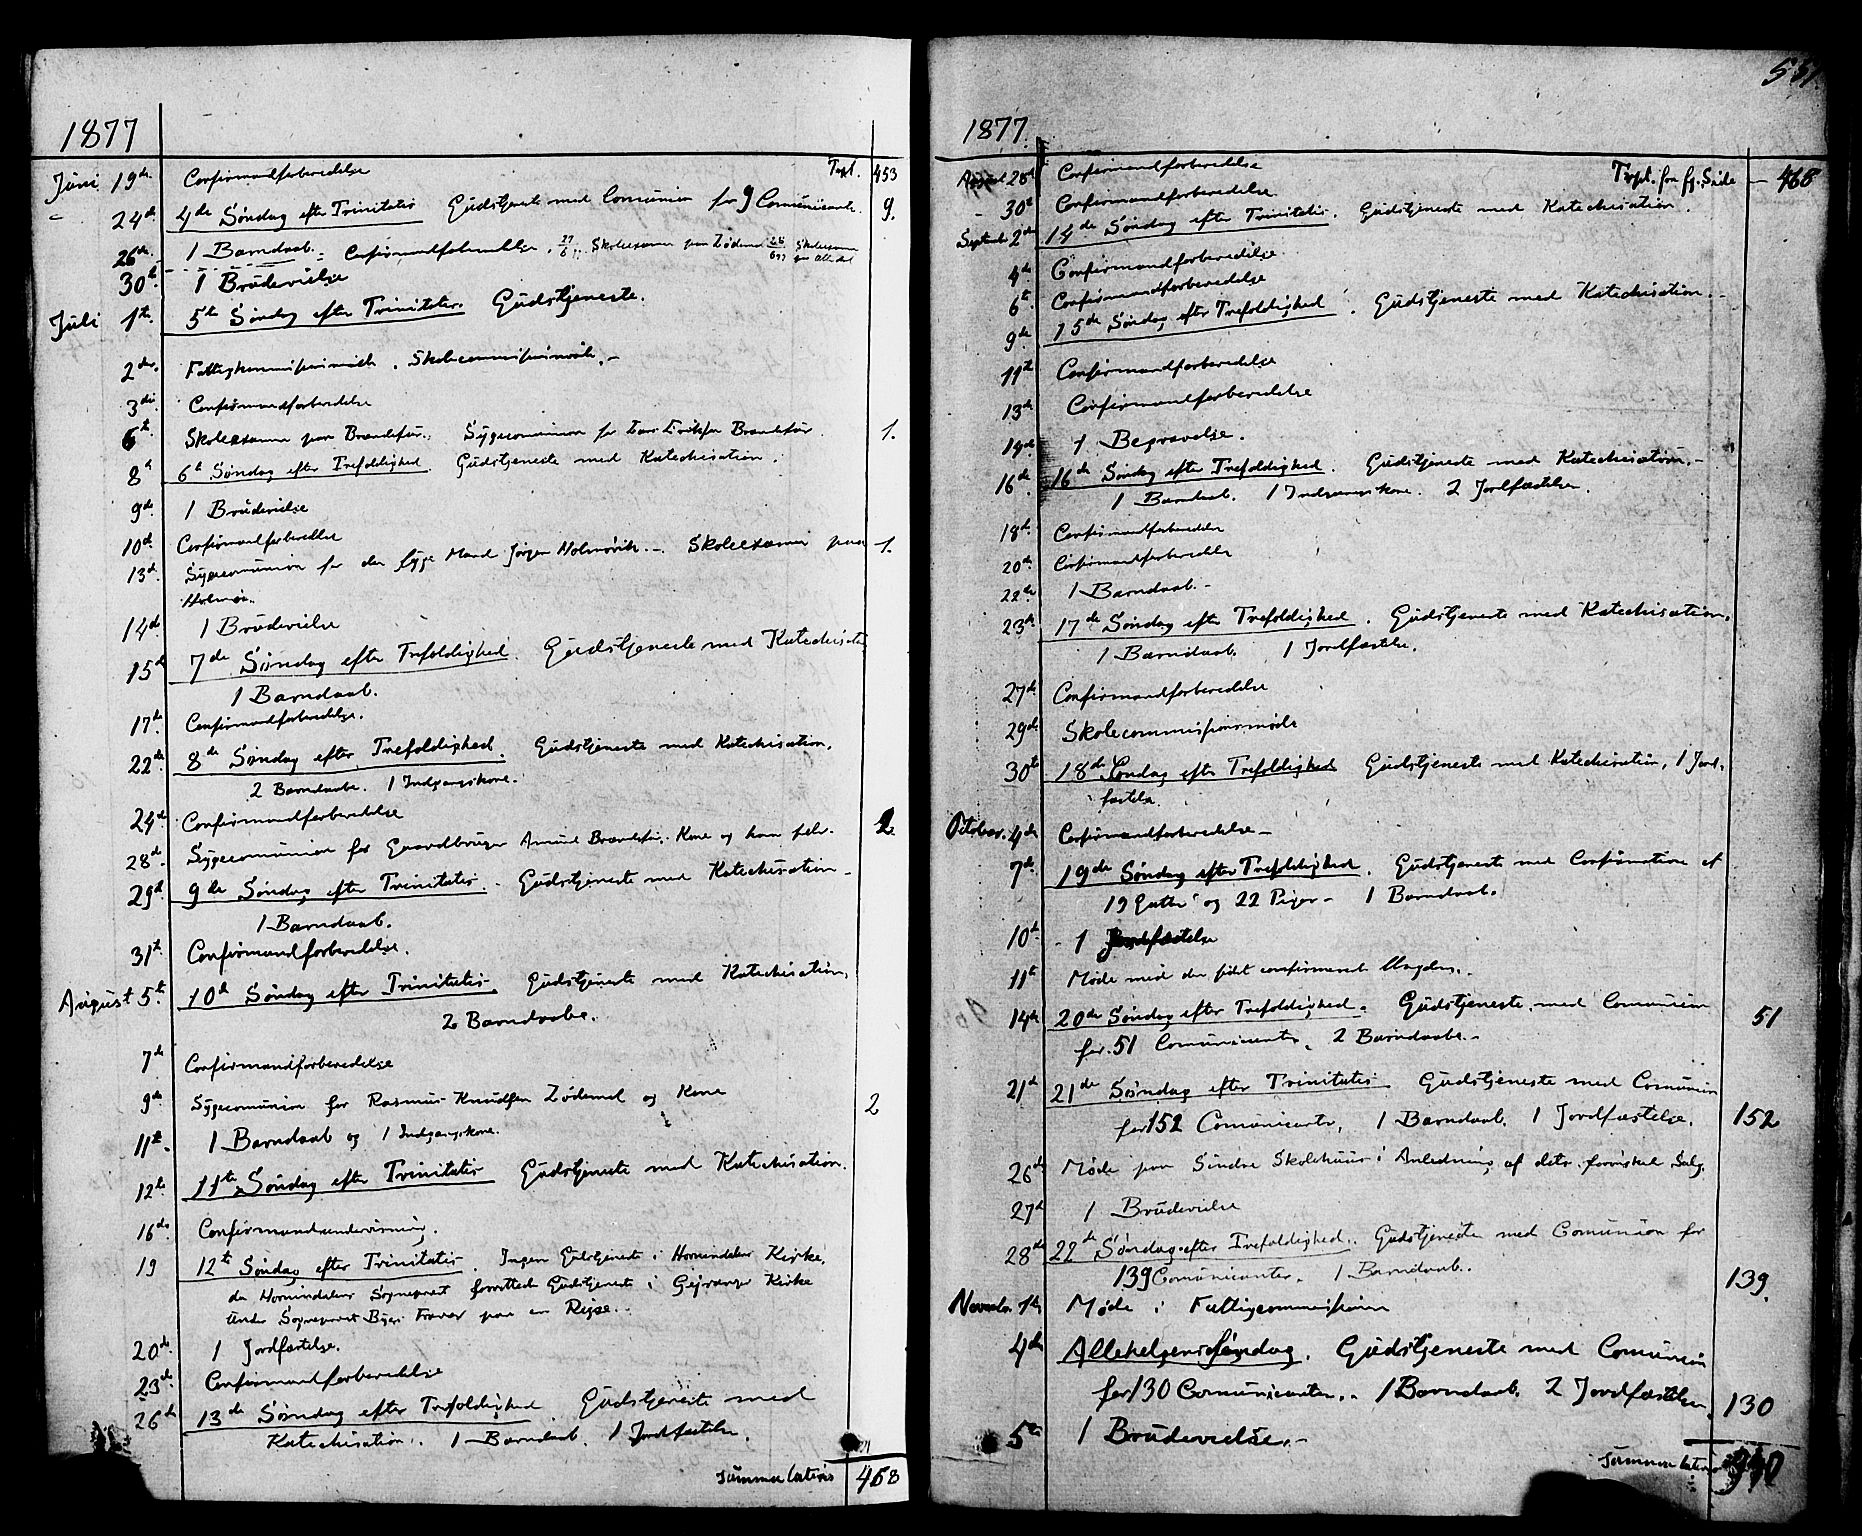 1877
Juni 19de Confirmandforberedelse Trspt. 453
- 24de 4de Søndag efter Trinitatis Gudstjeneste med Comunion for 9 Comunicanter. 9.
26de 1 Barndaab. - Confirmandforberedelse. 27/6 77 Skoleexamen paa Lødemel 28/6 77 Skoleexamen
30te 1 Brudevielse
Juli 1te 5te Søndag efter Trinitatis. Gudstjeneste.
2den Fattigkommissionsmøde. Skolecommissionsmøde. -
3die Confirmandforberedelse
6te Skoleexamen paa Brendefur. Sygecomunion for Brendefur. 1.
8de 6te Søndag efter Trefoldighed Gudstjeneste med Katechisation.
9de 1 Brudevielse
10de Confirmandforberedelse
13de Sygecomunion for den syge Mand Jørgen Holmøvik. -. Skoleexamen paa 1.
Holmøi.
14de 1 Brudevielse
15de 7de Søndag efter Trefoldighed. Gudstjeneste med Katechisation
1 Barndaab.
17de Confirmandforberedelse.
22de 8de Søndag efter Trefoldighed. Gudstjeneste med Katechisation.
2 Barndaabe. 1 Indgangskone.
24de Confirmandforberedelse
28de Sygecomunion for Gaardbruger Amund Brendefur. Kone og ham selv. 2
29de 9de Søndag efter Trinitatis. Gudstjeneste med Katechisation -
1 Barndaab.
31te Confirmandforberedelse.
August 5te 10de Søndag efter Trinitatis. Gudstjeneste med Katechisation.
2 Barndaabe.
7de Confirmandforberedelse
9de Sygecomunion for Rasmus Knudsen Lødemel og Kone 2
11te 1 Barndaab og 1 Indgangskone.
12te 11te Søndag efter Trinitatis Gudstjeneste med Katechisation.
16de Confirmandundervisning.
19 12te Søndag efter Trinitatis. Ingen Gudstjeneste i Hornindalens Kirke,
da Hornindalens Sognepræst forrettede Gudstjeneste i Gejranger Kirke
under Sognepræst Fravær paa en Rejse.
20de 1 Jordfæstelse.
23de Confirmandforberedelse
26de 13de Søndag efter Trefoldighed. Gudstjeneste med
Katechisation. 1 Barndaab. 1 Jordfæstelse.
Summa lateris 468
551
1877.
August 28de Confirmandforberedelse Trspt. fra fg. Side - 468
- 30te Confirmandforberedelse
September 2den 14de Søndag efter Trinitatis. Gudstjeneste med Katechisation.
4de Confirmandforberedelse
6te Confirmandforberedelse
9de 15de Søndag efter Trefoldighed. Gudstjeneste med Katechisation. -
11te Confirmandforberedelse
13de Confirmandforberedelse
14de 1 Begravelse.
16de 16de Søndag efter Trefoldighed. Gudstjeneste med Katechisation. -
1 Barndaab. 1 Indgangskone. 2 Jordfæstelser.
18de Confirmandforberedelse
20de Confirmandforberedelse
22de 1 Barndaab. -
23de 17de Søndag efter Trefoldighed. Gudstjeneste med Katechisation.
1 Barndaab. 1 Jordfæstelse.
27de Confirmandforberedelse
29de Skolecommissionsmøde
30te 18de Søndag efter Trefoldighed Gudstjeneste med Katechisation, 1 Jord-
fæstelse.
October. 4de Confirmandforberedelse -
7de 19de Søndag efter Trefoldighed. Gudstjeneste med Confirmation af
19 Gutter og 22 Piger - 1 Barndaab.
10de - 1 Jordfæstelse
11te Møde med den sidst confirmerede Ungdom. -
14de 20de Søndag efter Trefoldighed. Gudstjeneste med Comunion
for 51 Comunicanter. 2 Barndaabe. - 51
21de 21de Søndag efter Trinitatis. Gudstjeneste med Comunion
for 152 Comunicanter, 1 Barndaab. 1 Jordfæstelse. 152
26de Møde paa Søndre Skolehuus i Anledning af dets Salg.
27de 1 Brudevielse
28de 22de Søndag efter Trefoldighed. Gudstjeneste med Comunion for
139 Comunicanter. 1 Barndaab. 139.
November 1te Møde i Fattigcommissionen
4de Allehelgens Søndag. Gudstjeneste med Comunion
for 130 Comunicanter. 1 Barndaab. 2 Jordfæstelser. 130
5te 1 Brudevielse. -
Summa lateris 940